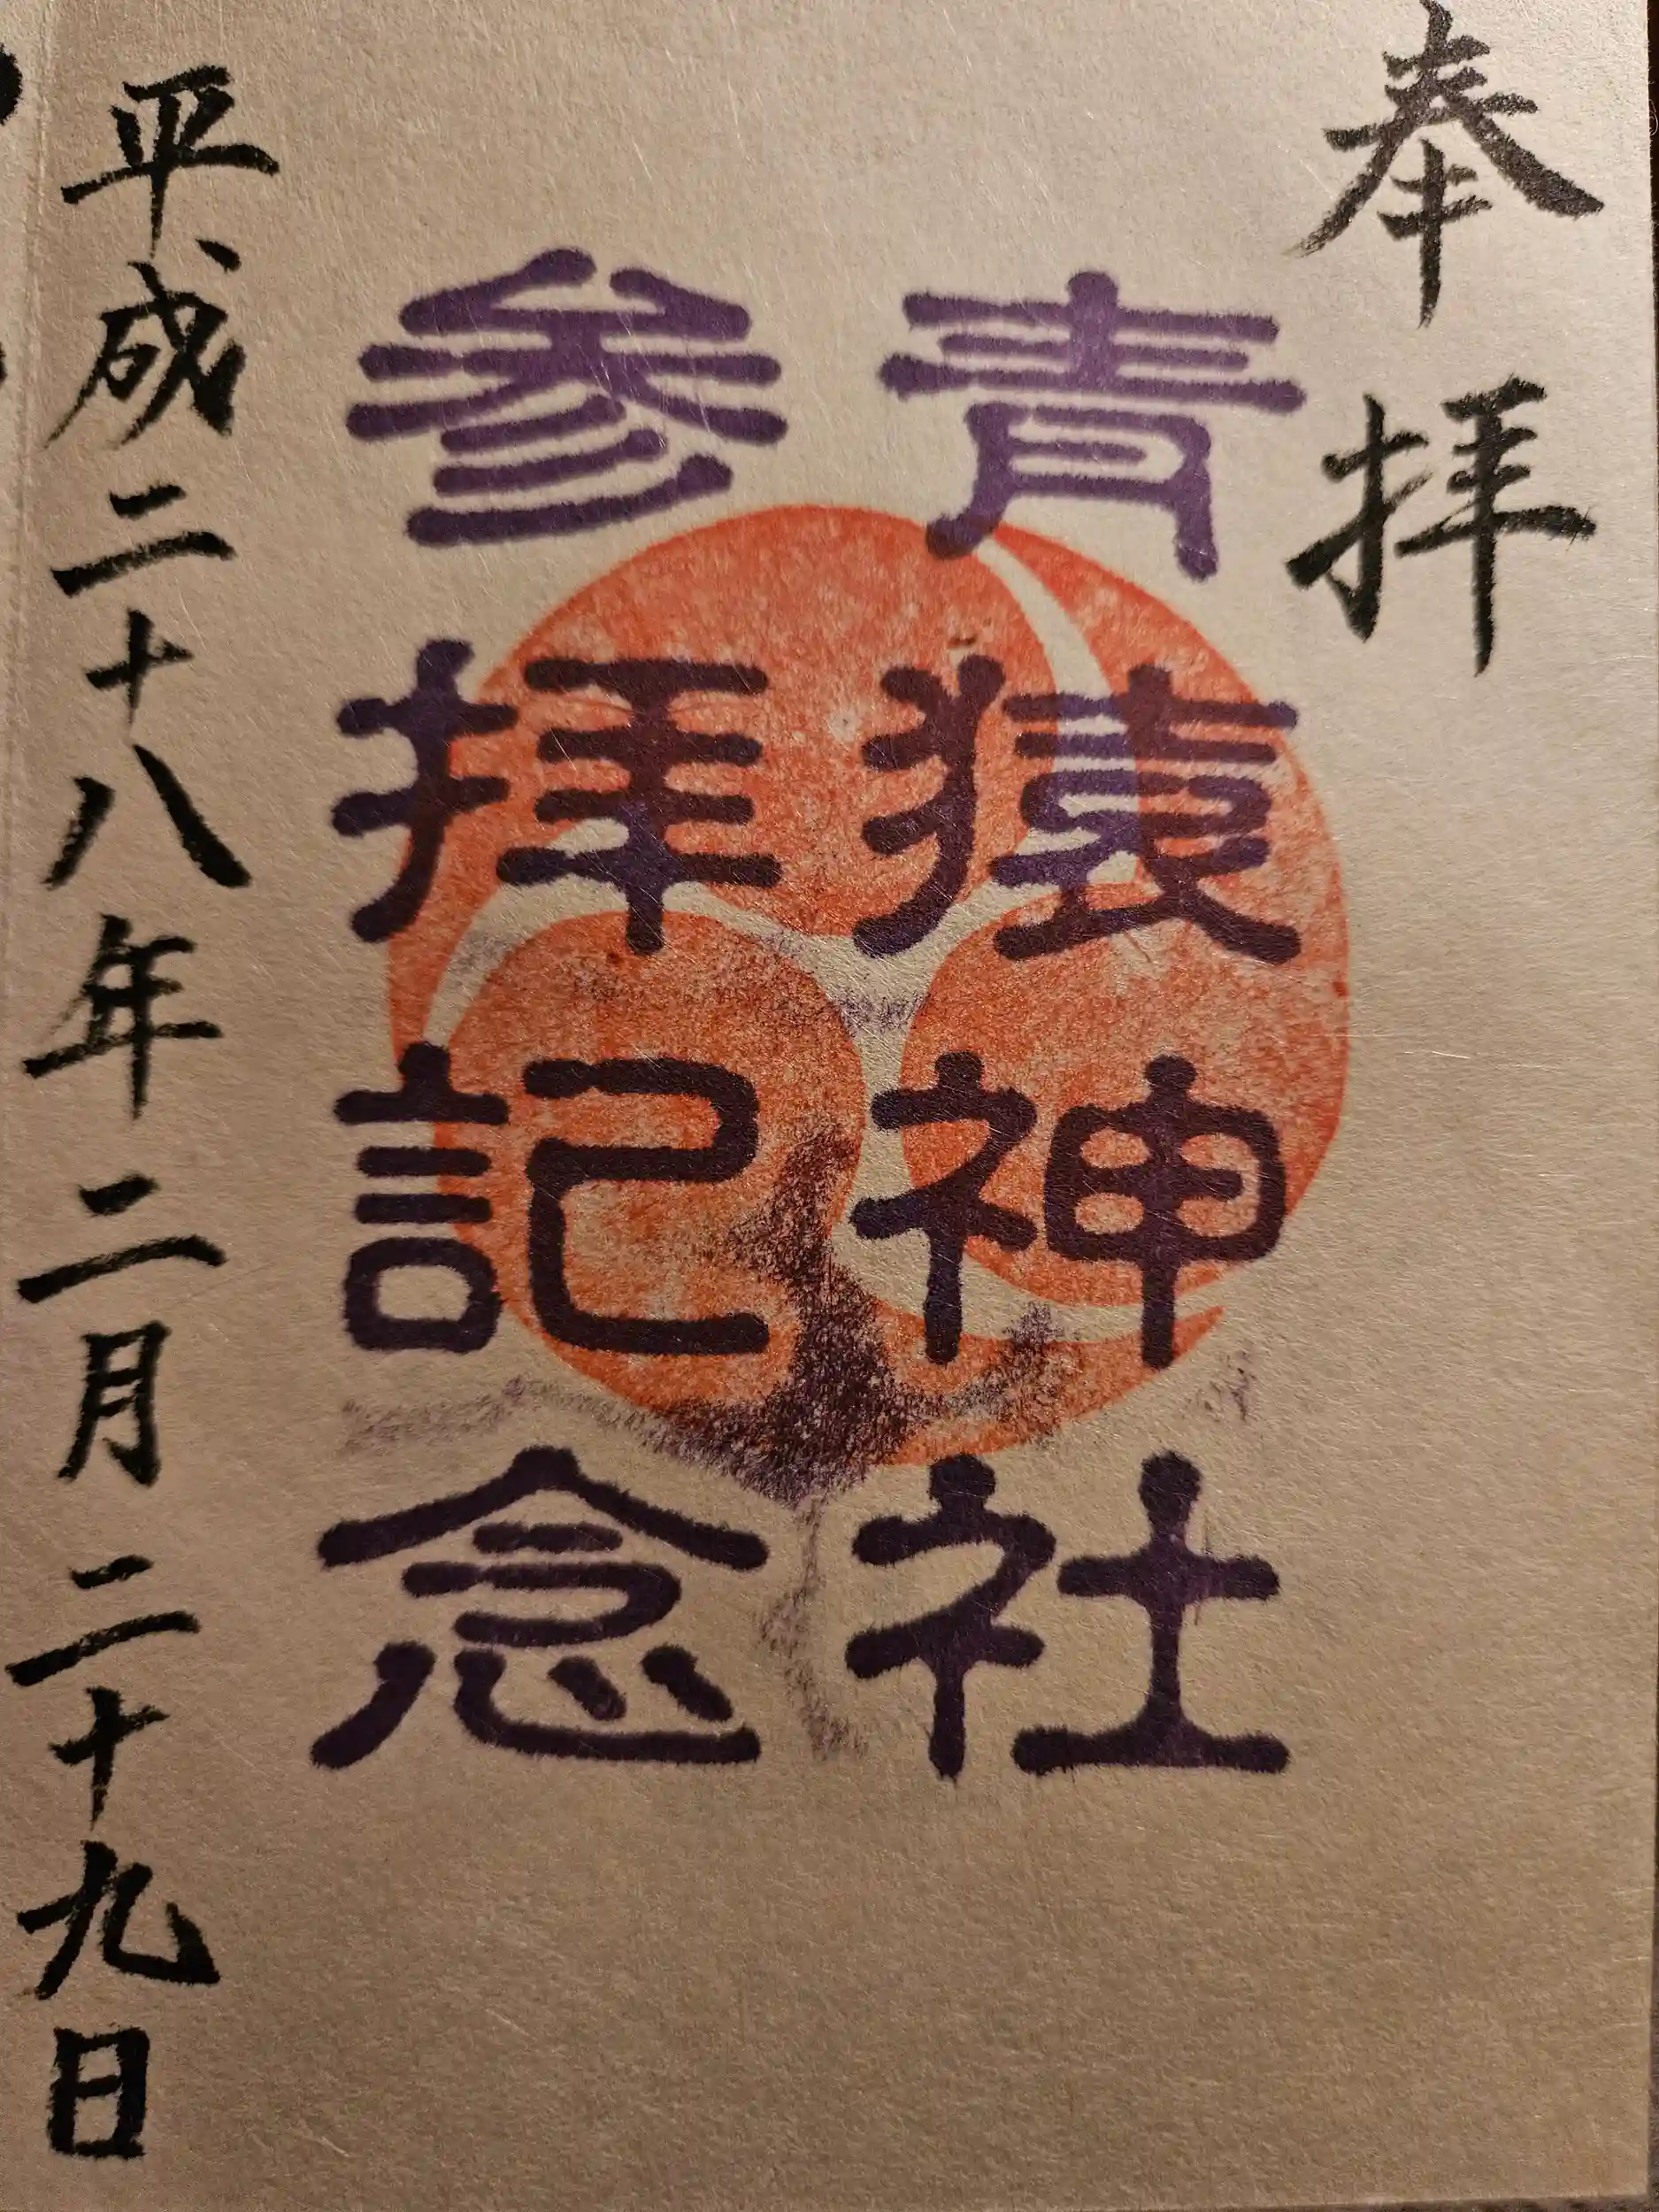 奉拝
青猿神社
参拝記念
平成二十八年二月二十九日